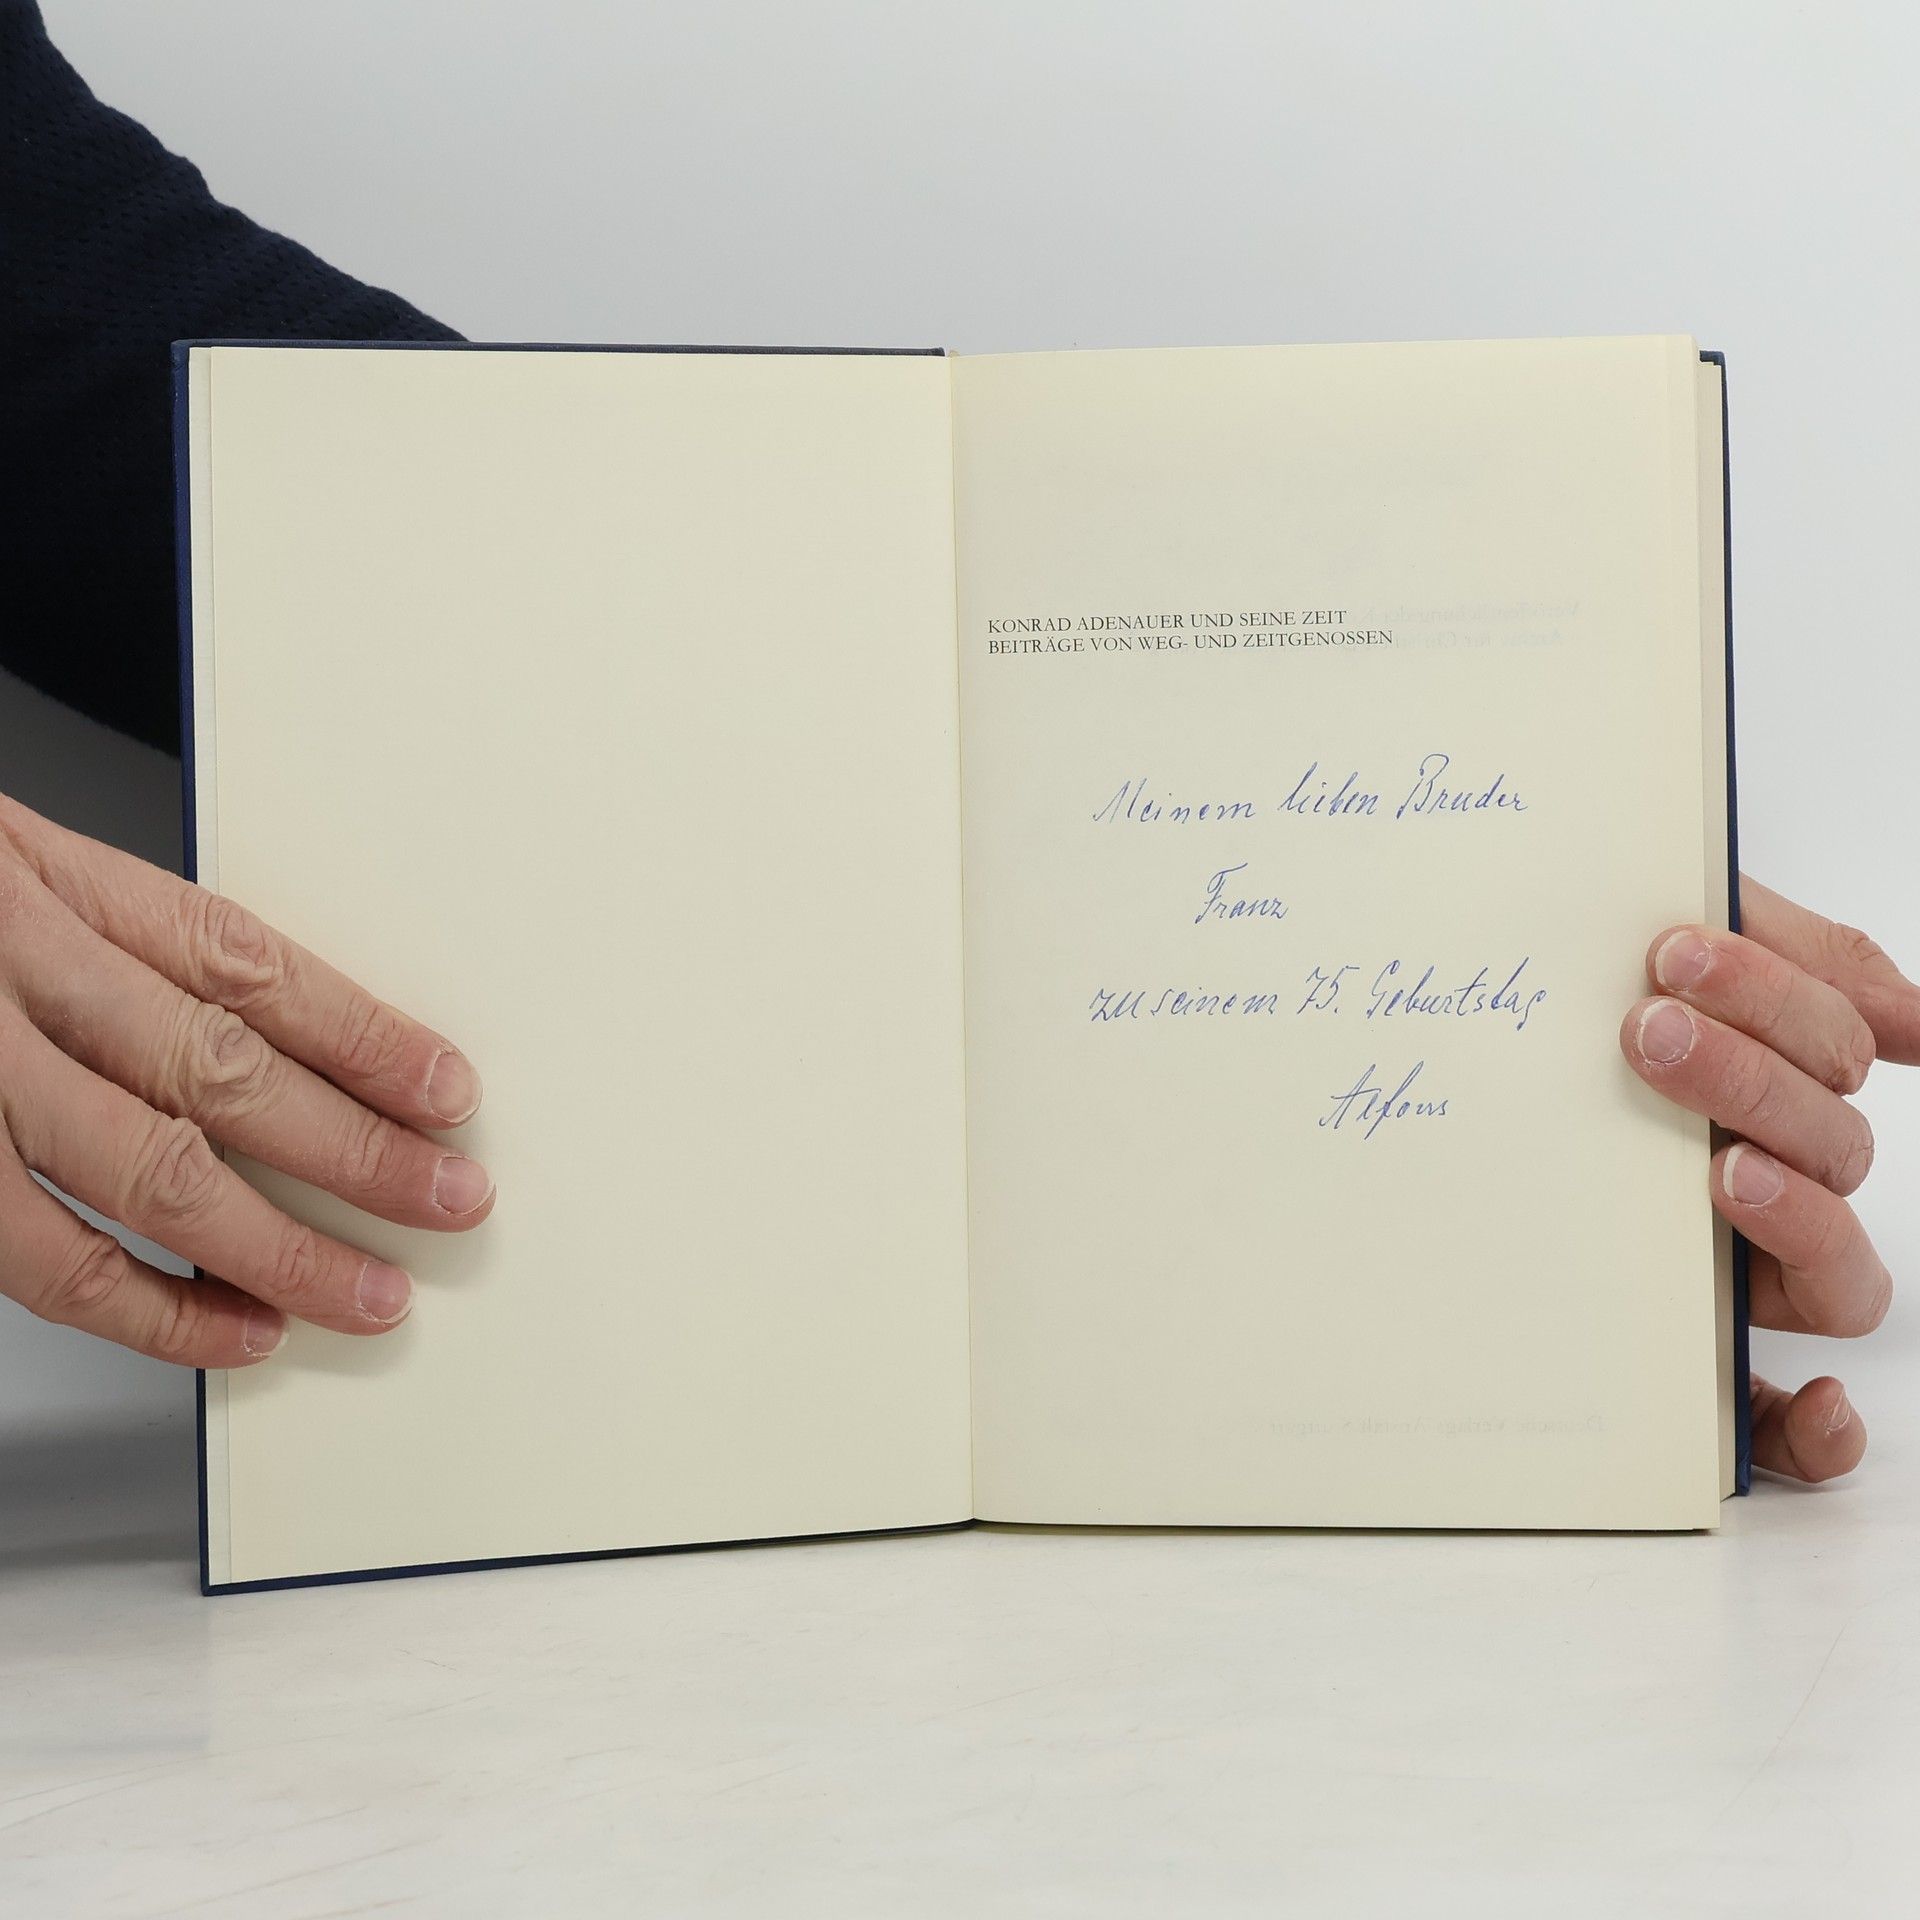 KONRAD ADENAUER UND SEINE ZEIT
BEITRÄGE VON WEG- UND ZEITGENOSSEN
Meinem lieben Bruder
Franz
zu seinem 75. Geburtstag
Alfons